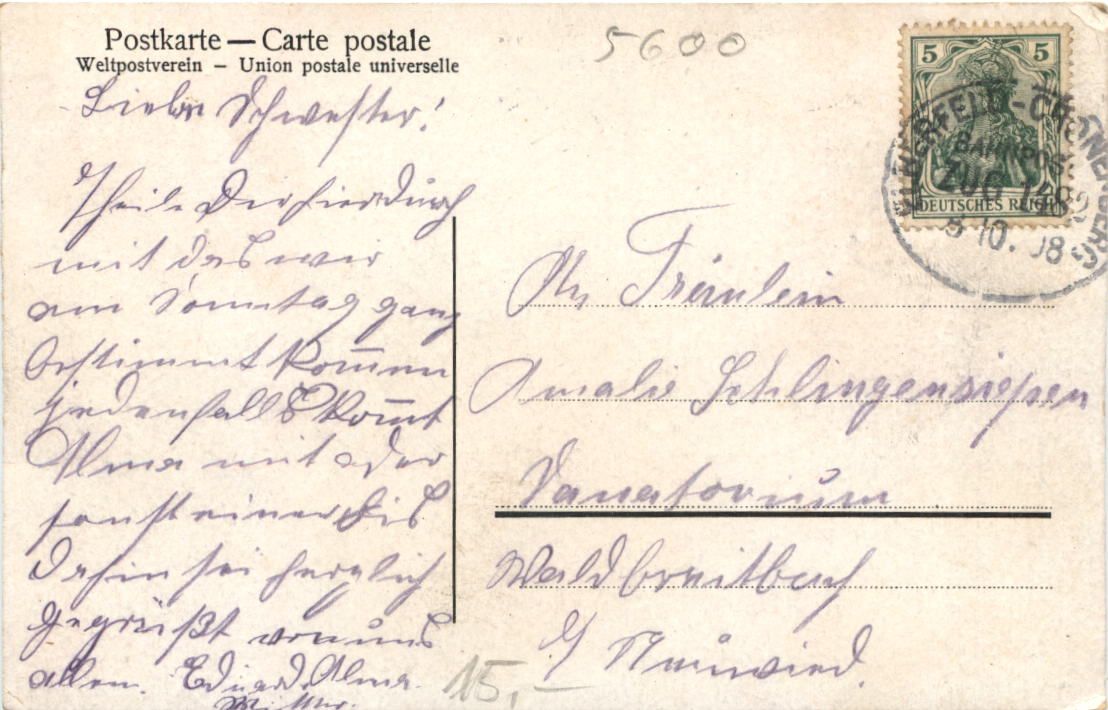 Postkarte — Carte postale
Weltpostverein – Union postale universelle
5600
5 5
DEUTSCHES REICH
ELBERFELD-CRONENBERG
BAHNPOST
ZUG
5 10. 08
Liebe Schwester!
Theile Dir hierdurch
mit das wir
am Sonntag ganz
bestimmt kommen
jedenfalls kommt
Alma mit oder
sonst einer Bis
dahin sei herzlich
gegrüßt von uns
allen. Eduard. Alma.
15,–
An Fräulein
Amalie Schlingensiepen
Sanatorium
Waldbreitbach
b/ Neuwied.